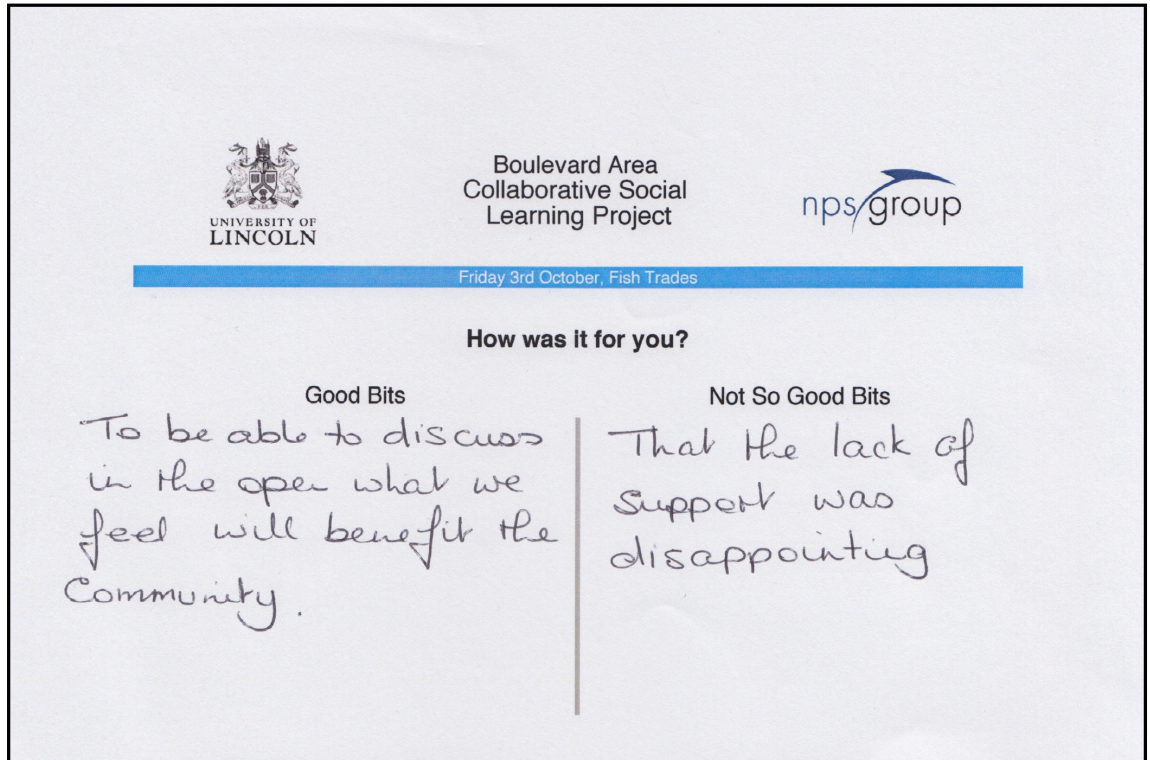 UNIVERSITY OF
LINCOLN
Boulevard Area
Collaborative Social
Learning Project
nps group
Friday 3rd October, Fish Trades
How was it for you?
Good Bits
To be able to discuss
in the open what we
feel will benefit the
Community.
Not So Good Bits
That the lack of
support was
disappointing